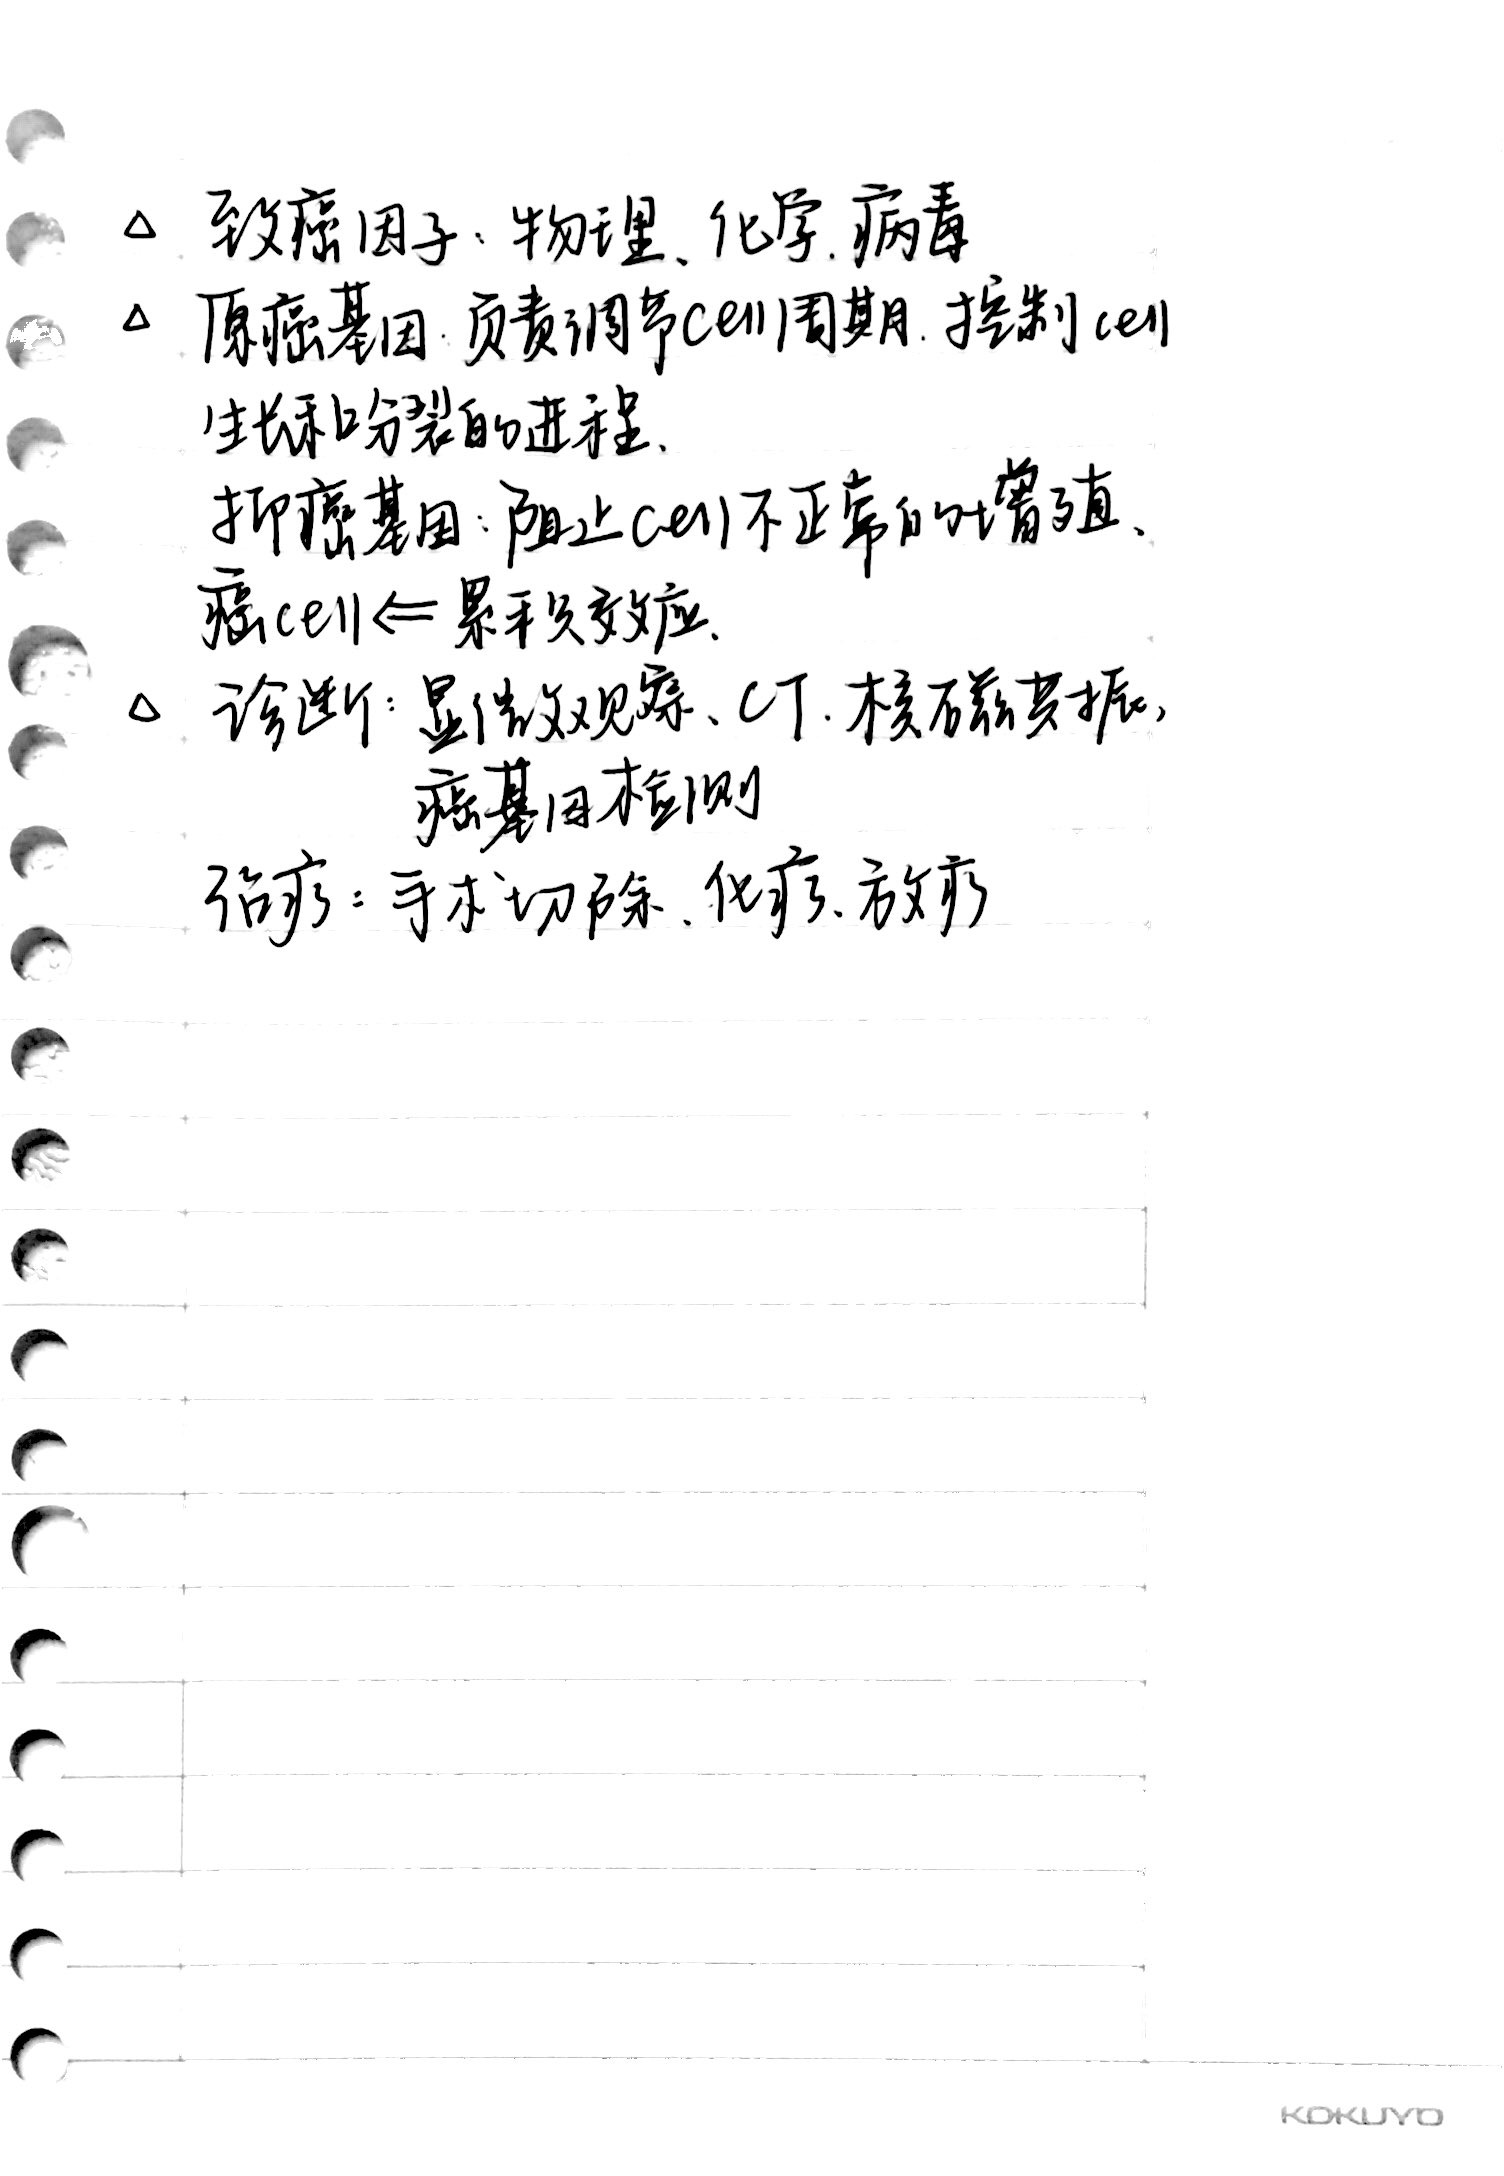 △ 致癌因子：物理、化学、病毒
△ 原癌基因：负责调节cell周期、控制cell
生长和分裂的进程、
抑癌基因：阻止cell不正常的增殖、
癌cell⇐累积效应、
△ 诊断：显微观察、CT、核磁共振，
癌基因检测
治疗：手术切除、化疗、放疗
KOKUYO